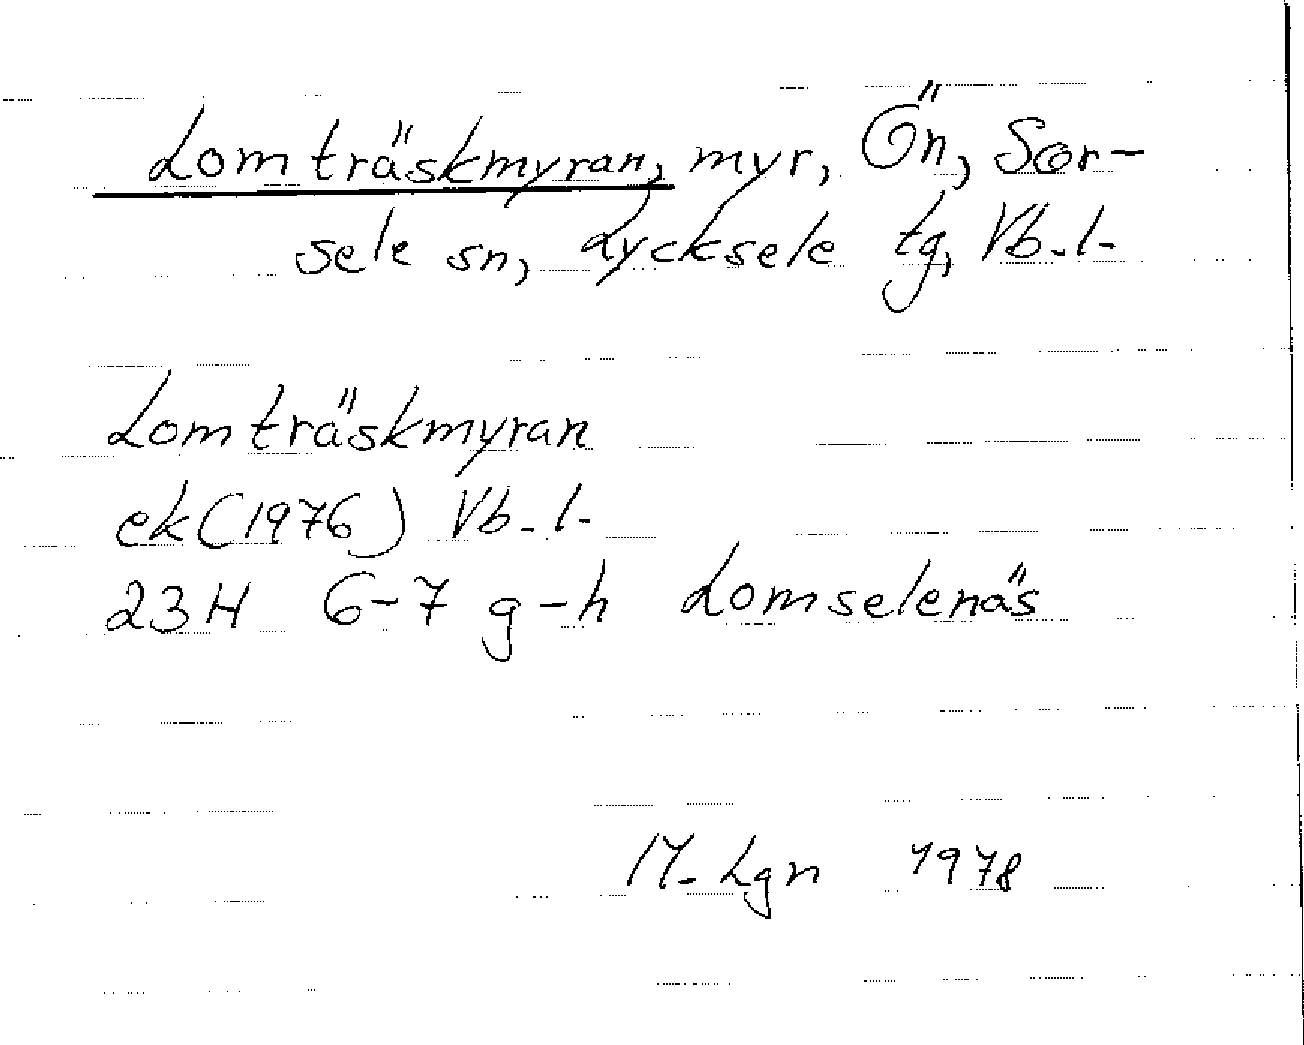 Lomträskmyran, myr, Ön, Sor-
sele sn, Lycksele tg, Vb. l.
Lomträskmyran
ek (1976) Vb. l.
23H 6-7 g-h Lomselenäs
M. Lgn 1978